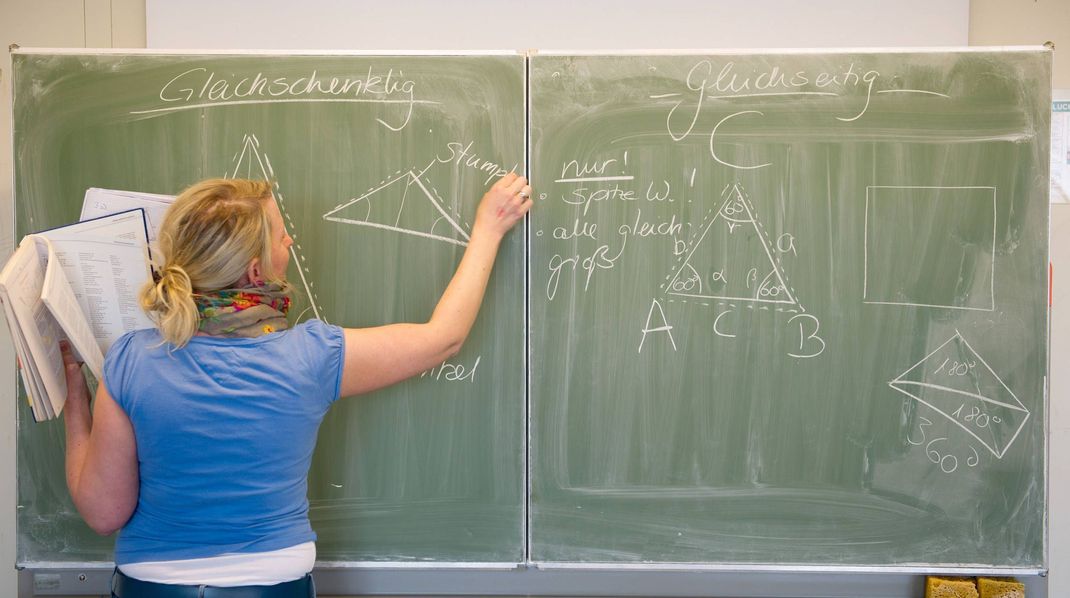 Gleichschenklig
Stump
Gleichseitig
C
nur!
Spitze W. !
alle gleich
groß
60°
b
a
60°
α
β
60°
A
c
B
180°
180°
360°